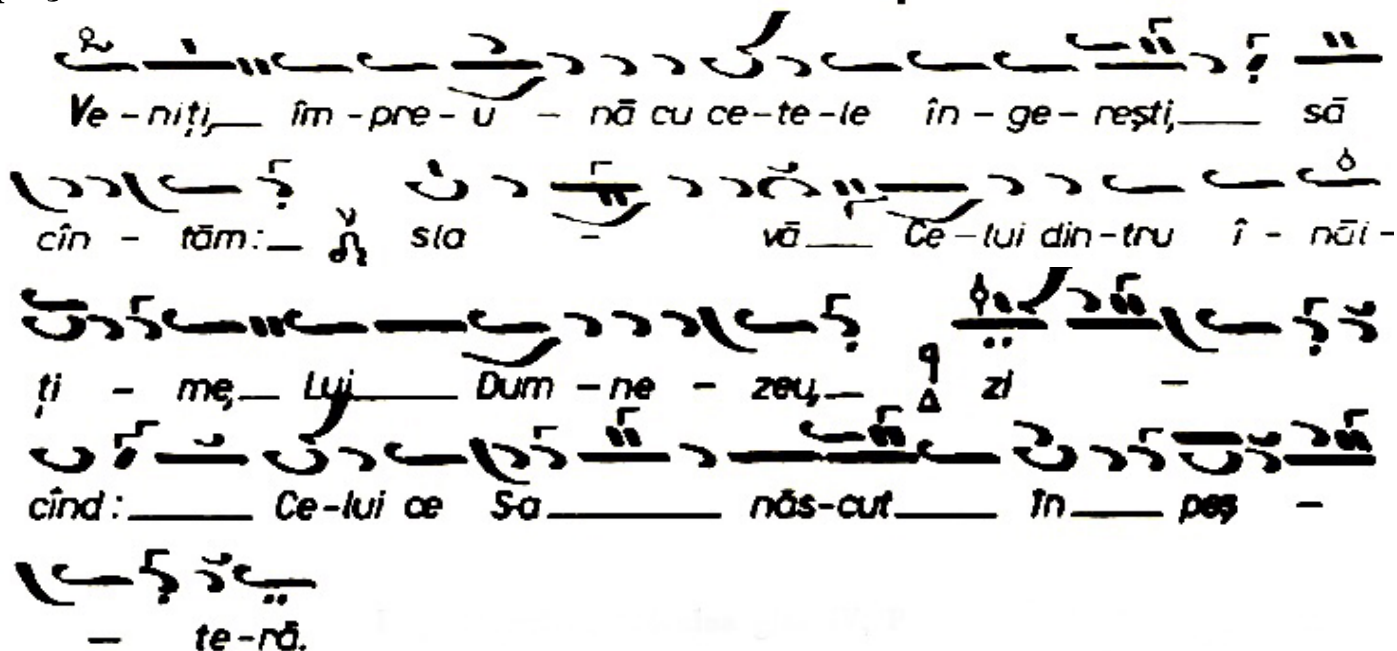 Ve-niți,__ îm-pre-u - nă cu ce-te-le în-ge-rești,__ să
cîn - tăm:_ sla - vă__ Ce-lui din-tru î - năi-
ți - me,_ Lui__ Dum-ne - zeu,_ zi -
cînd:__ Ce-lui ce S-a__ năs-cut__ în__ peș -
- te-ră.